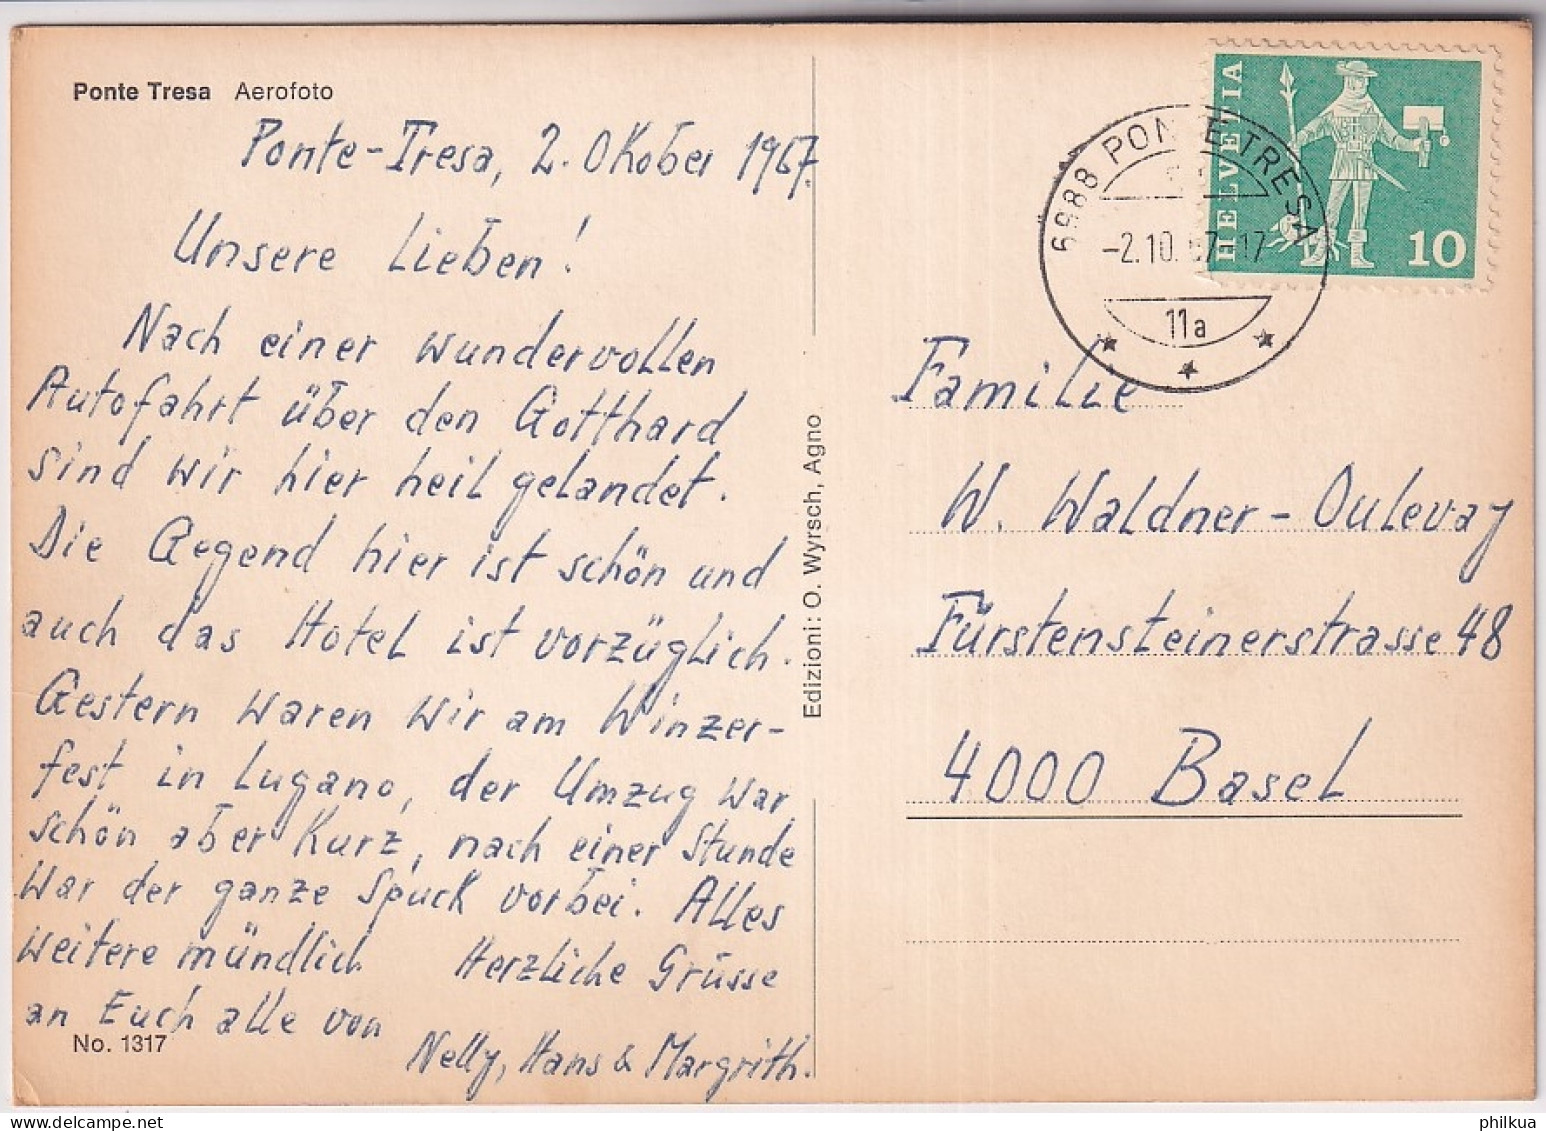 Ponte Tresa Aerofoto
Ponte-Tresa, 2. Okober 1967.
Unsere Lieben!
Nach einer wundervollen
Autofahrt über den Gotthard
sind wir hier heil gelandet.
Die Gegend hier ist schön und
auch das Hotel ist vorzüglich.
Gestern waren wir am Winzer-
fest in Lugano, der Umzug war
schön aber kurz, nach einer Stunde
war der ganze Spuck vorbei. Alles
weitere mündlich Herzliche Grüsse
an Euch alle von
Nelly, Hans & Margrith.
No. 1317
Edizioni: O. Wyrsch, Agno
HELVETIA
10
6988 PONTE TRESA
-2.10.67-17
11a
Familie
W. Waldner-Oulevay
Fürstensteinerstrasse 48
4000 Basel
philkua